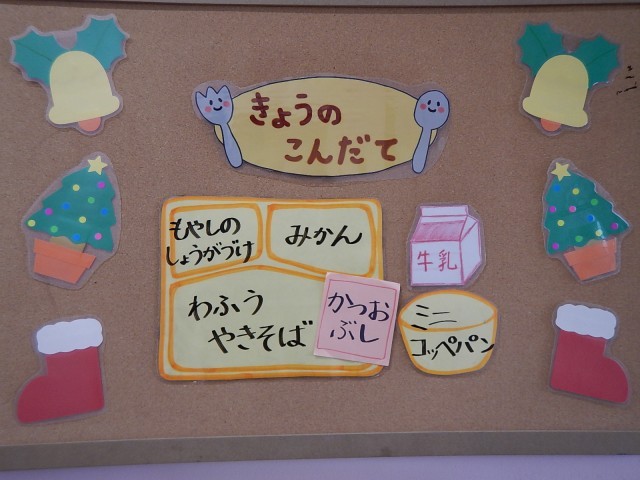 きょうの
こんだて
もやしの
しょうがづけ
みかん
わふう
やきそば
かつお
ぶし
牛乳
ミニ
コッペパン